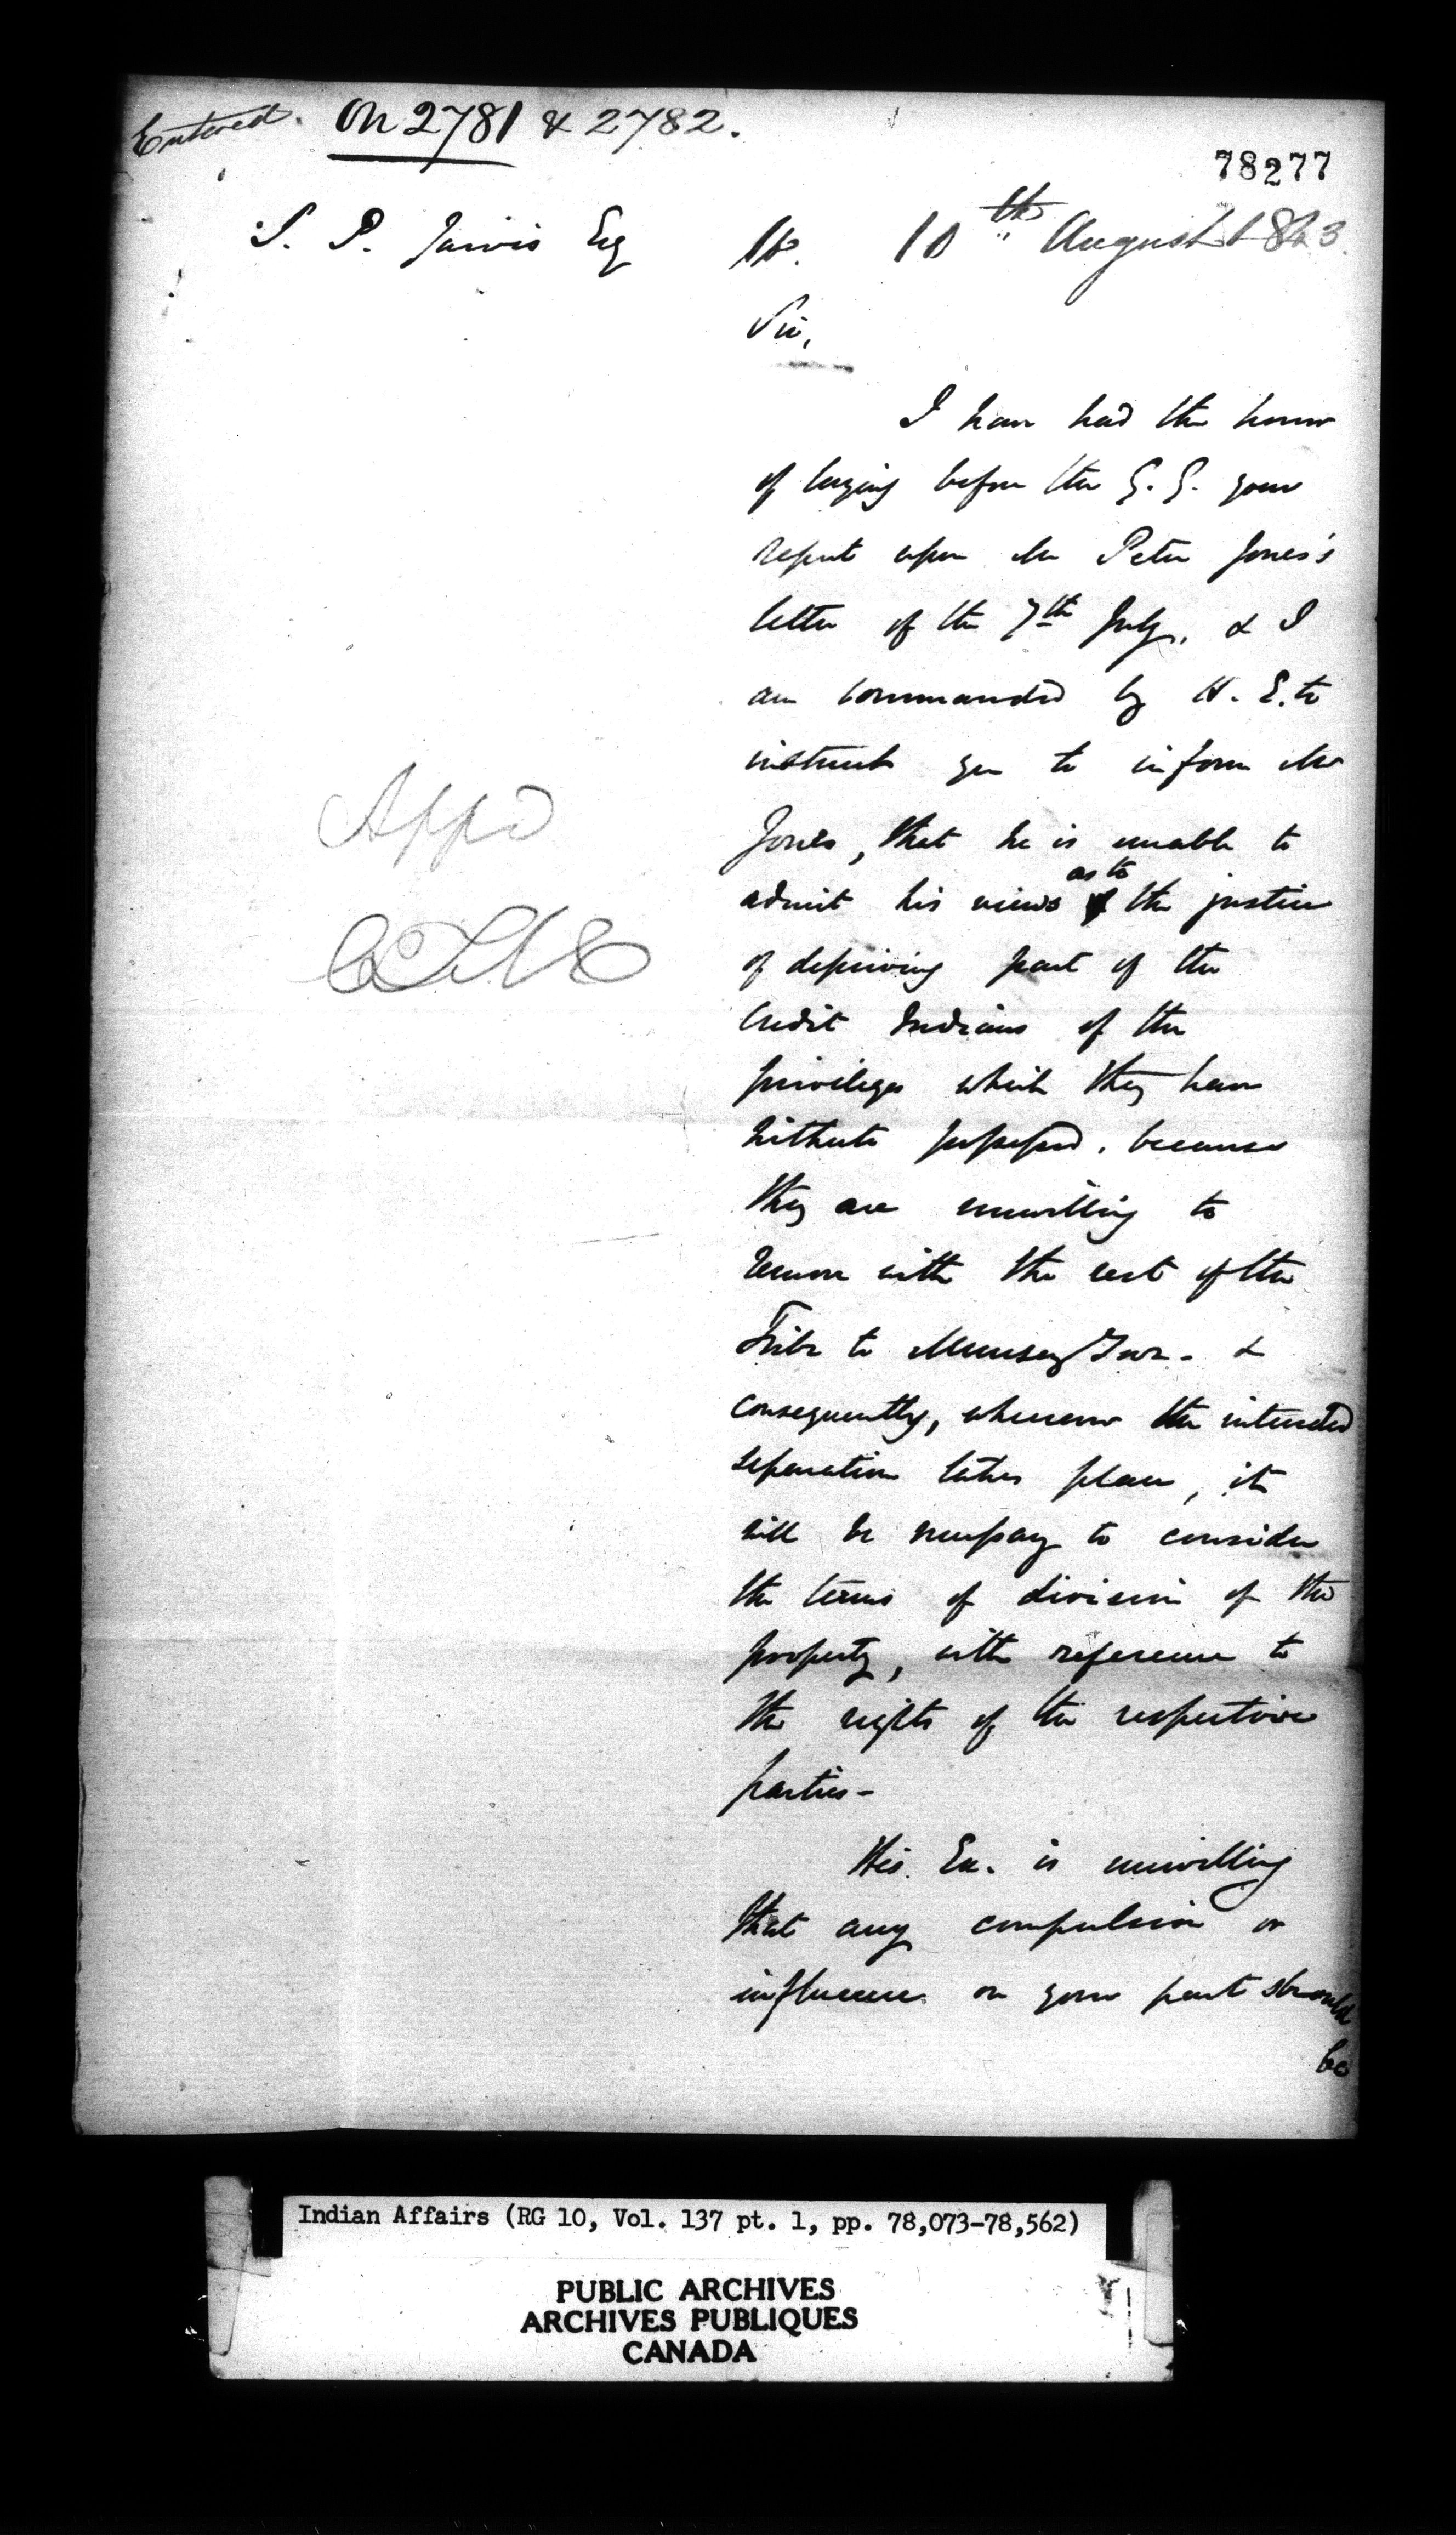 Entered. On 2781 & 2782.
78277
S. P. Jarvis Esq
10th August 1843.
Sir,
I have had the honor
of laying before the G. G. your
report upon Mr Peter Jones's
letter of the 7th July, & I
am commanded by H. E. to
instruct you to inform Mr
Jones, that he is unable to
admit his views as to the justice
of depriving part of the
Credit Indians of the
privileges which they have
hitherto possessed, because
they are unwilling to
remove with the rest of the
Tribe to Munsey Town - &
consequently, whenever the intended
separation takes place, it
will be necessary to consider
the terms of division of the
property, with reference to
the rights of the respective
parties -
His Ex. is unwilling
that any compulsion or
influence on your part should
be
Appd
Indian Affairs (RG 10, Vol. 137 pt. 1, pp. 78,073-78,562)
PUBLIC ARCHIVES
ARCHIVES PUBLIQUES
CANADA